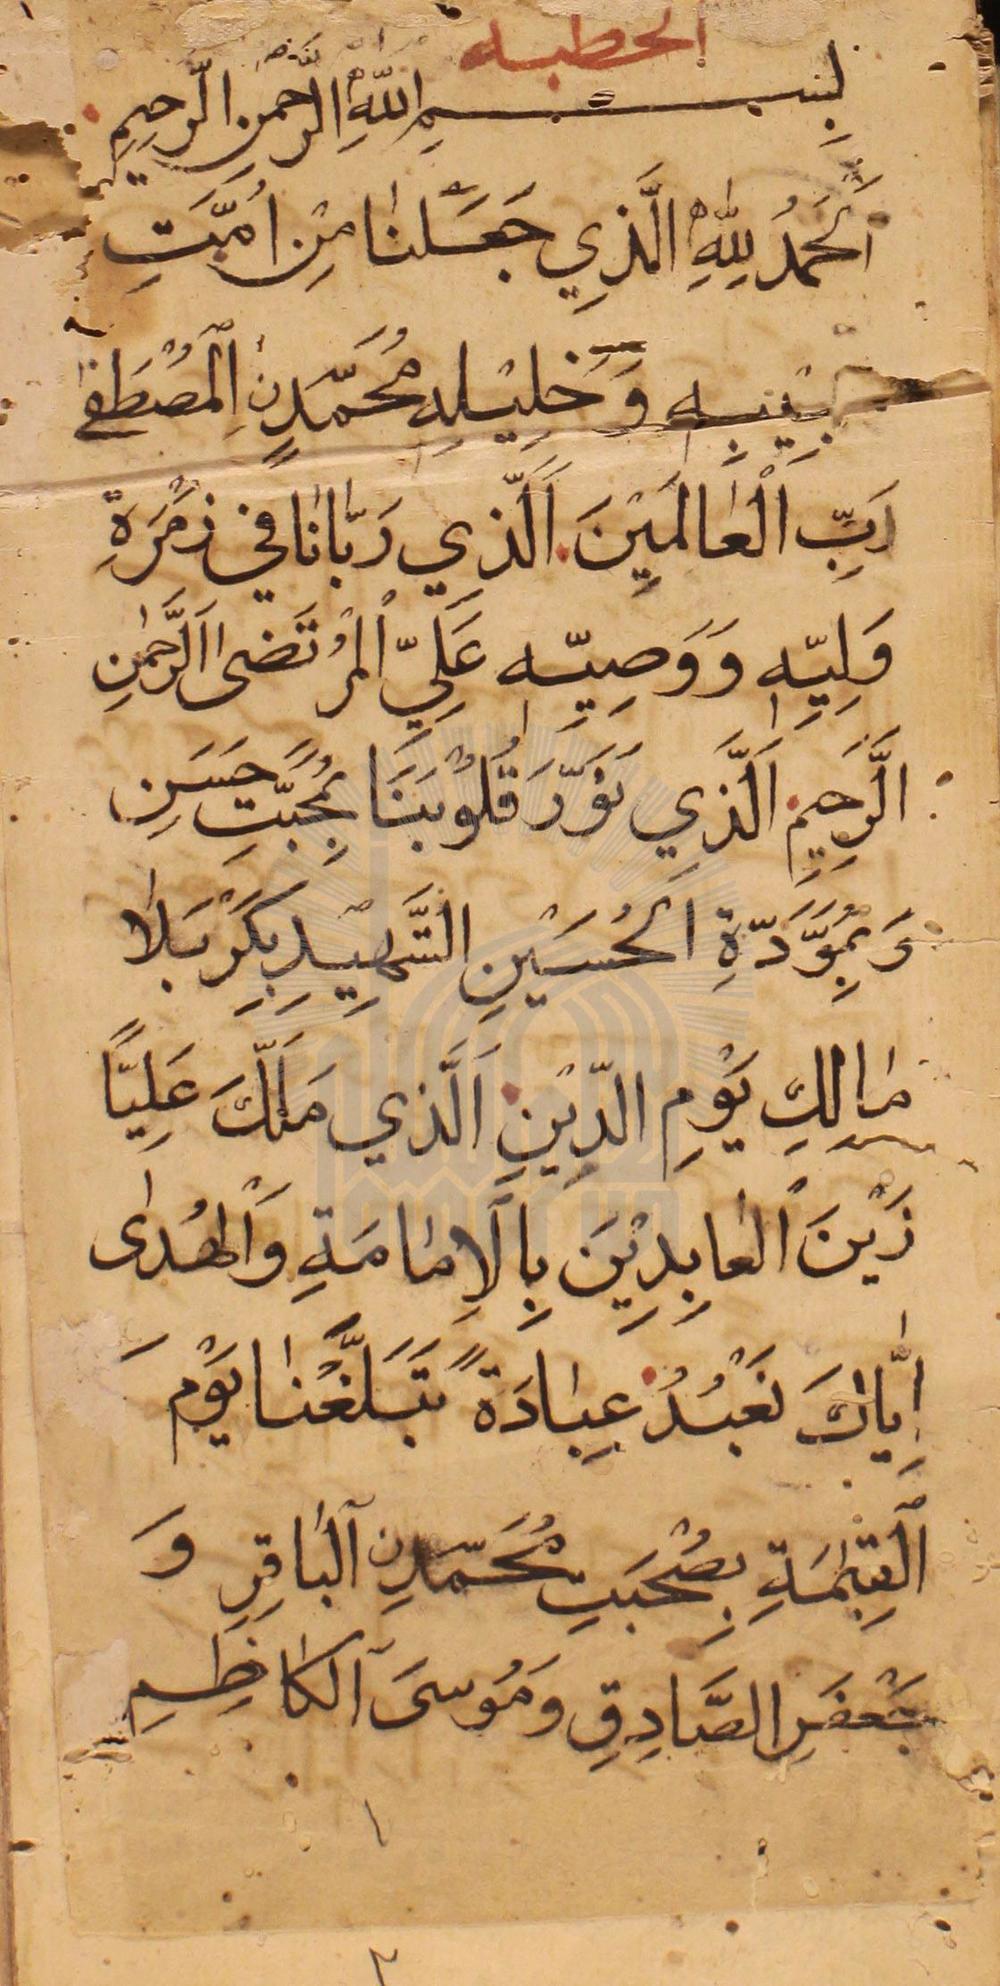 الخطبه
بِسْمِ اللهِ الرَّحمنِ الرَّحِيمِ
اَلحَمدُ لِلّٰهِ الَّذِي جَعَلَنٰا مِنْ اُمَّتِ
بِيْبِهٖ وَ خَلِيْلِهٖ مُحَمَّدٍنِ الْمُصْطَفٰى
رَبِّ الْعٰالَمِيْنَ اَلَّذِي رَبّٰانٰا في زُمْرَةِ
وَلِيِّهٖ وَ وَصِيِّهٖ عَلِيِّ الْمُرْتَضٰى اَلرَّحْمٰنِ
الرَّحِيمِ اَلَّذِي نَوَّرَ قُلُوْبَنَا بِمُحَبَّتِ حَسَنِ
وَ بِمُوَدَّةِ الْحُسَيْنِ الشَّهِيْدِ بِكَرْبَلٰا
مٰالِكِ يَوْمِ الدِّيْنِ اَلَّذي مَلَّكَ عَلِيًّا
زَيْنَ الْعٰابِدِيْنَ بِالْاِمٰامَةِ وَالْهُدٰى
اِيّٰاكَ نَعْبُدُ عِبٰادَةً تُبَلِّغُنٰا يَوْمَ
الْقِيٰمَةِ بِصُحْبَتِ مُحَمَّدِنِ الْبٰاقِرِ وَ
جَعْفَرِ الصَّادِقِ وَ مُوسَى الْكٰاظِمِ
١
٢